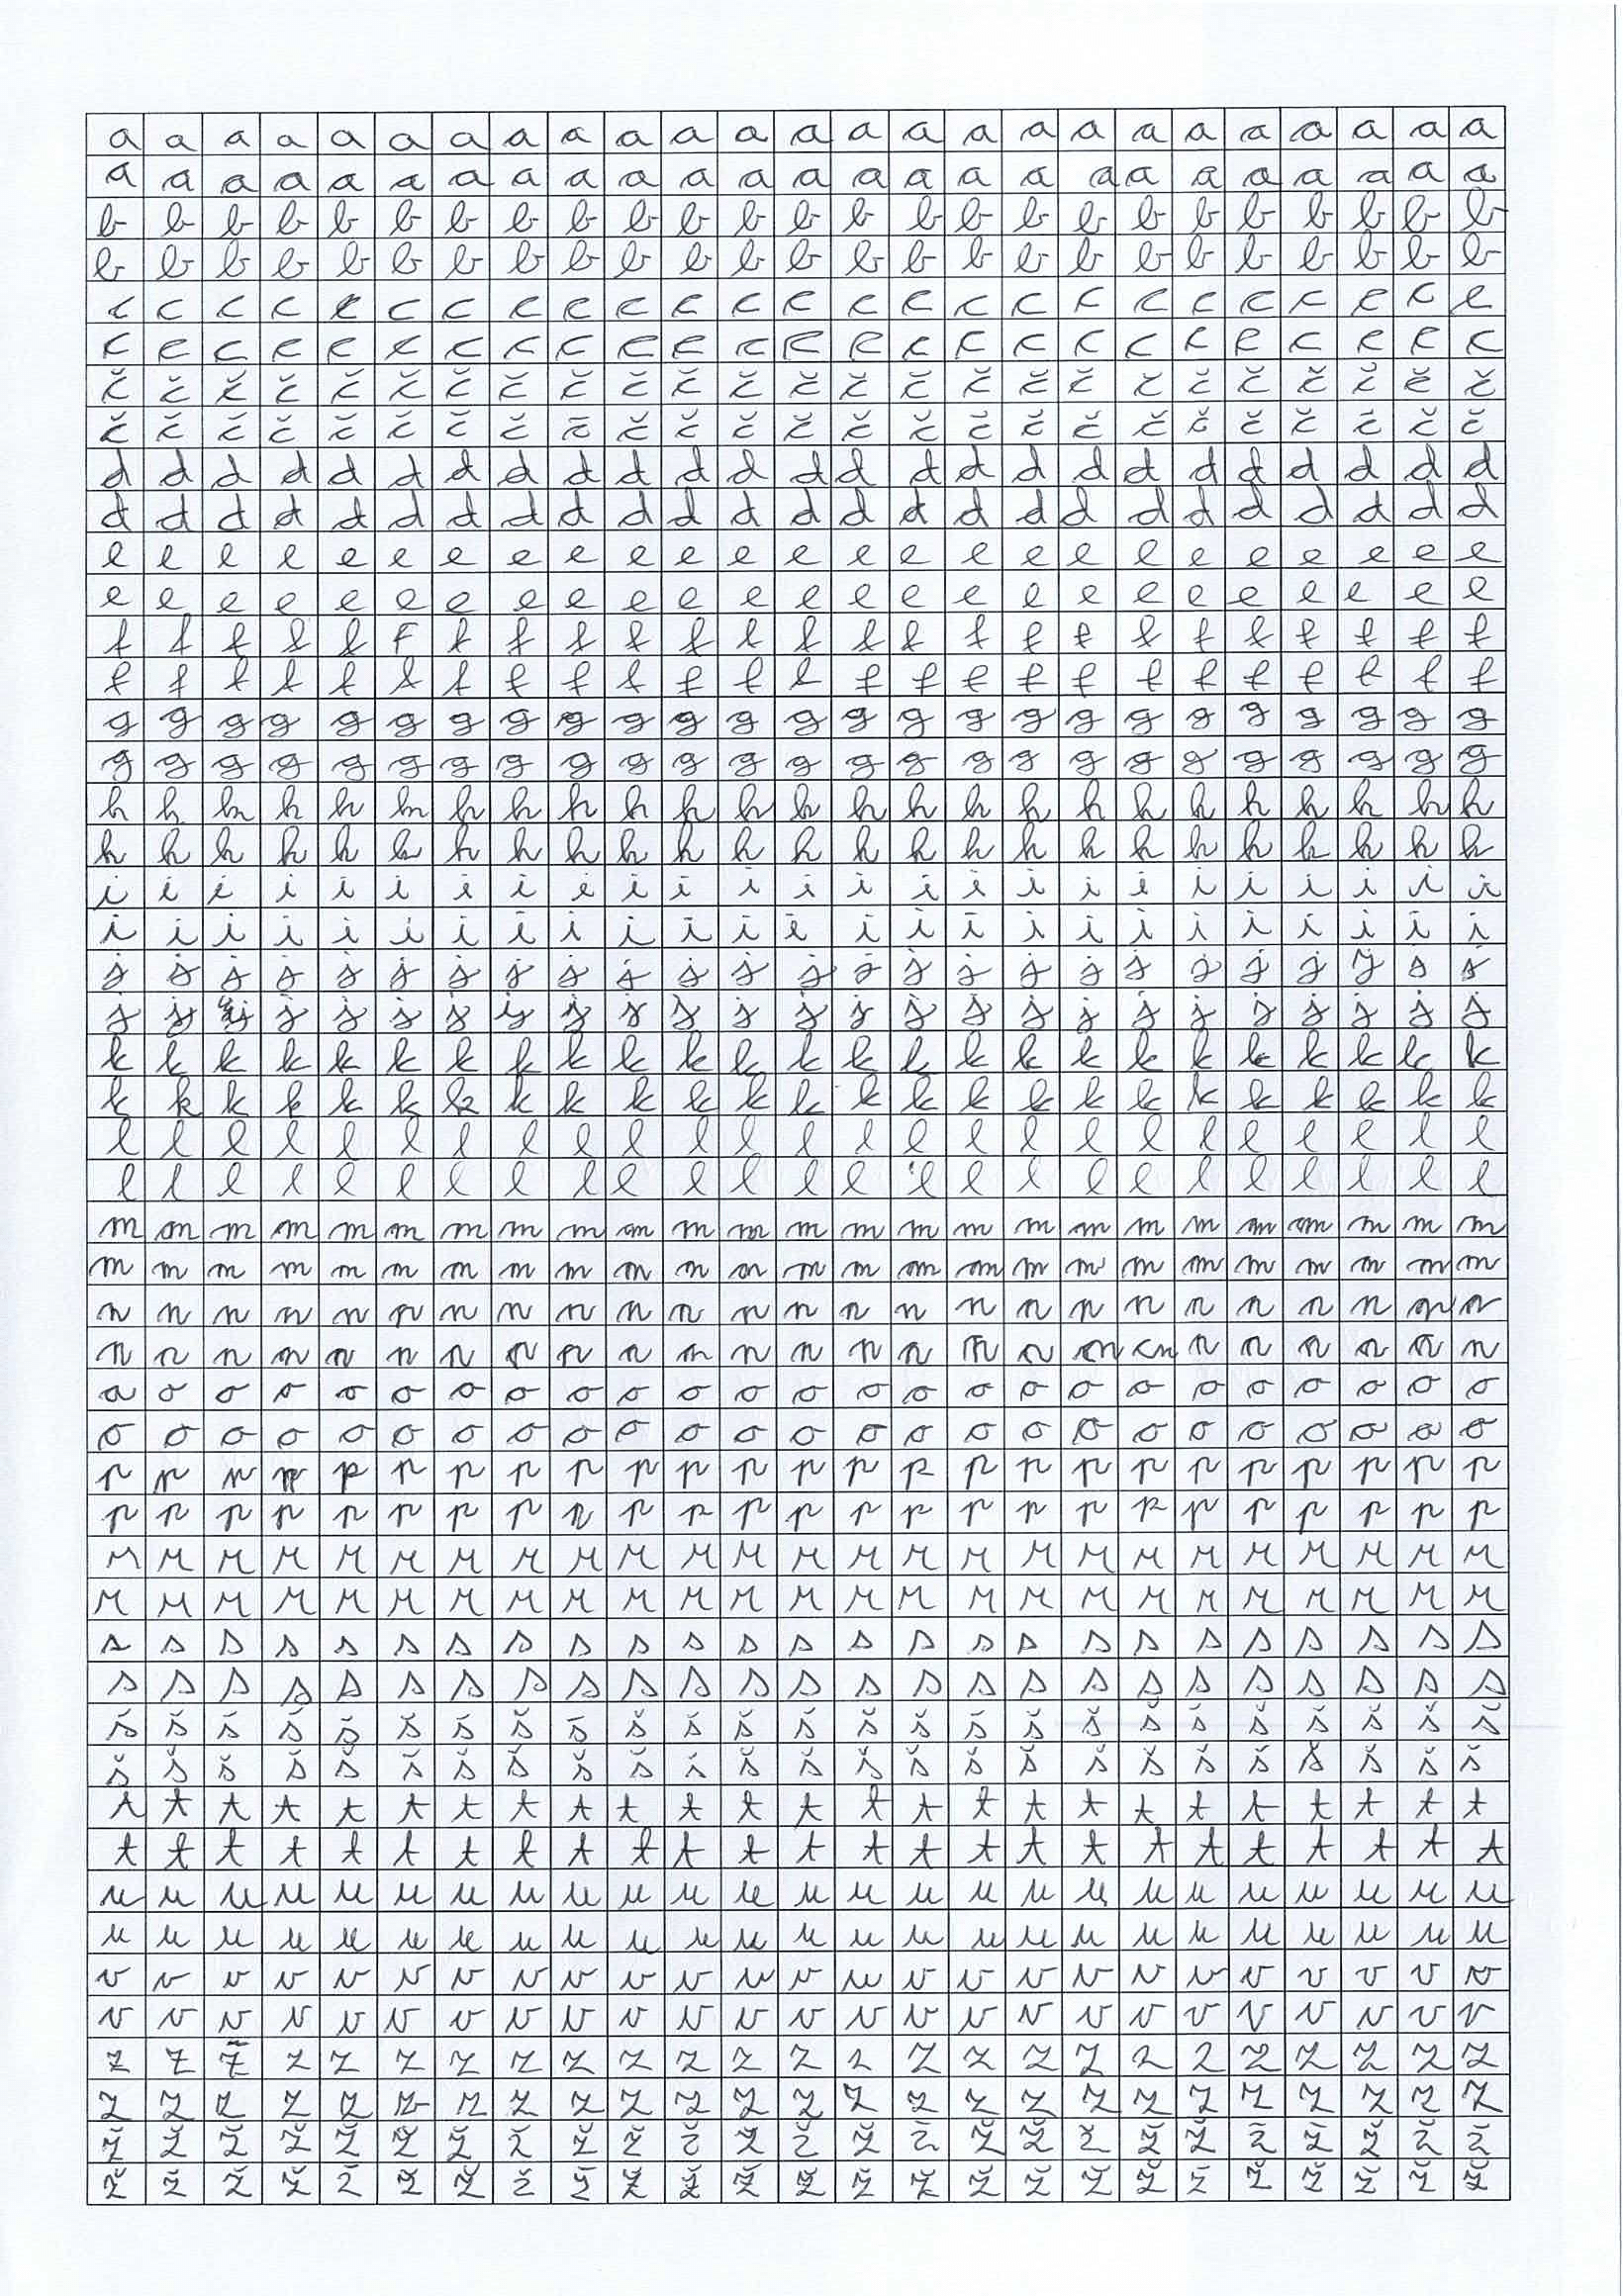 a a a a a a a a a a a a a a a a a a a a a a a a a
a a a a a a a a a a a a a a a a a a a a a a a a a
b b b b b b b b b b b b b b b b b b b b b b b b b
b b b b b b b b b b b b b b b b b b b b b b b b b
c c c c c c c c c c c c c c c c c c c c c c c c c
c c c c c c c c c c c c c c c c c c c c c c c c c
č č č č č č č č č č č č č č č č č č č č č č č č č
č č č č č č č č č č č č č č č č č č č č č č č č č
d d d d d d d d d d d d d d d d d d d d d d d d d
d d d d d d d d d d d d d d d d d d d d d d d d d
e e e e e e e e e e e e e e e e e e e e e e e e e
e e e e e e e e e e e e e e e e e e e e e e e e e
f f f f f f f f f f f f f f f f f f f f f f f f f
f f f f f f f f f f f f f f f f f f f f f f f f f
g g g g g g g g g g g g g g g g g g g g g g g g g
g g g g g g g g g g g g g g g g g g g g g g g g g
h h h h h h h h h h h h h h h h h h h h h h h h h
h h h h h h h h h h h h h h h h h h h h h h h h h
i i i i i i i i i i i i i i i i i i i i i i i i i
i i i i i i i i i i i i i i i i i i i i i i i i i
j j j j j j j j j j j j j j j j j j j j j j j j j
j j j j j j j j j j j j j j j j j j j j j j j j j
k k k k k k k k k k k k k k k k k k k k k k k k k
k k k k k k k k k k k k k k k k k k k k k k k k k
l l l l l l l l l l l l l l l l l l l l l l l l l
l l l l l l l l l l l l l l l l l l l l l l l l l
m m m m m m m m m m m m m m m m m m m m m m m m m
m m m m m m m m m m m m m m m m m m m m m m m m m
n n n n n n n n n n n n n n n n n n n n n n n n n
n n n n n n n n n n n n n n n n n n n n n n n n n
o o o o o o o o o o o o o o o o o o o o o o o o o
o o o o o o o o o o o o o o o o o o o o o o o o o
p p p p p p p p p p p p p p p p p p p p p p p p p
p p p p p p p p p p p p p p p p p p p p p p p p p
r r r r r r r r r r r r r r r r r r r r r r r r r
r r r r r r r r r r r r r r r r r r r r r r r r r
s s s s s s s s s s s s s s s s s s s s s s s s s
s s s s s s s s s s s s s s s s s s s s s s s s s
š š š š š š š š š š š š š š š š š š š š š š š š š
š š š š š š š š š š š š š š š š š š š š š š š š š
t t t t t t t t t t t t t t t t t t t t t t t t t
t t t t t t t t t t t t t t t t t t t t t t t t t
u u u u u u u u u u u u u u u u u u u u u u u u u
u u u u u u u u u u u u u u u u u u u u u u u u u
v v v v v v v v v v v v v v v v v v v v v v v v v
v v v v v v v v v v v v v v v v v v v v v v v v v
z z z z z z z z z z z z z z z z z z z z z z z z z
z z z z z z z z z z z z z z z z z z z z z z z z z
ž ž ž ž ž ž ž ž ž ž ž ž ž ž ž ž ž ž ž ž ž ž ž ž ž
ž ž ž ž ž ž ž ž ž ž ž ž ž ž ž ž ž ž ž ž ž ž ž ž ž